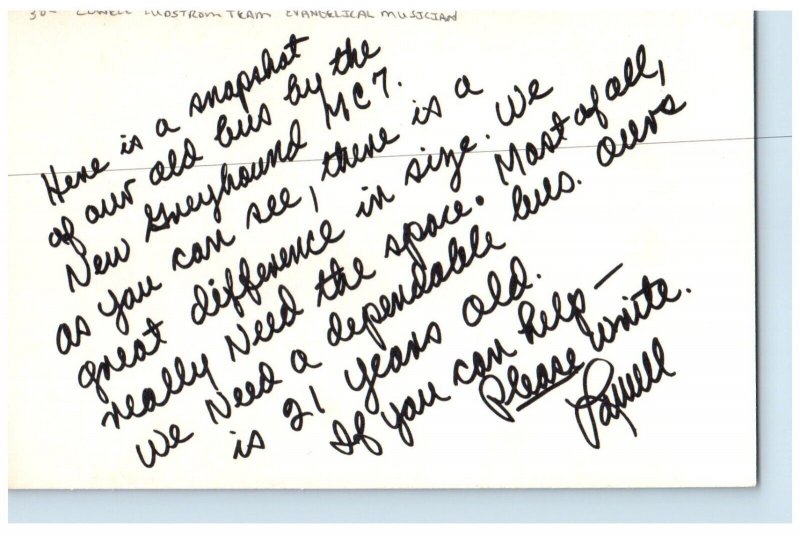 30- LOWELL LUDSTROM TEAM EVANGELICAL MUSICIAN
Here is a snapshot
of our old bus by the
New Greyhound MC7.
as you can see, there is a
great difference in size. We
really Need the space. Most of all,
we Need a dependable bus. ours
is 21 years old.
If you can help —
Please write.
Lowell